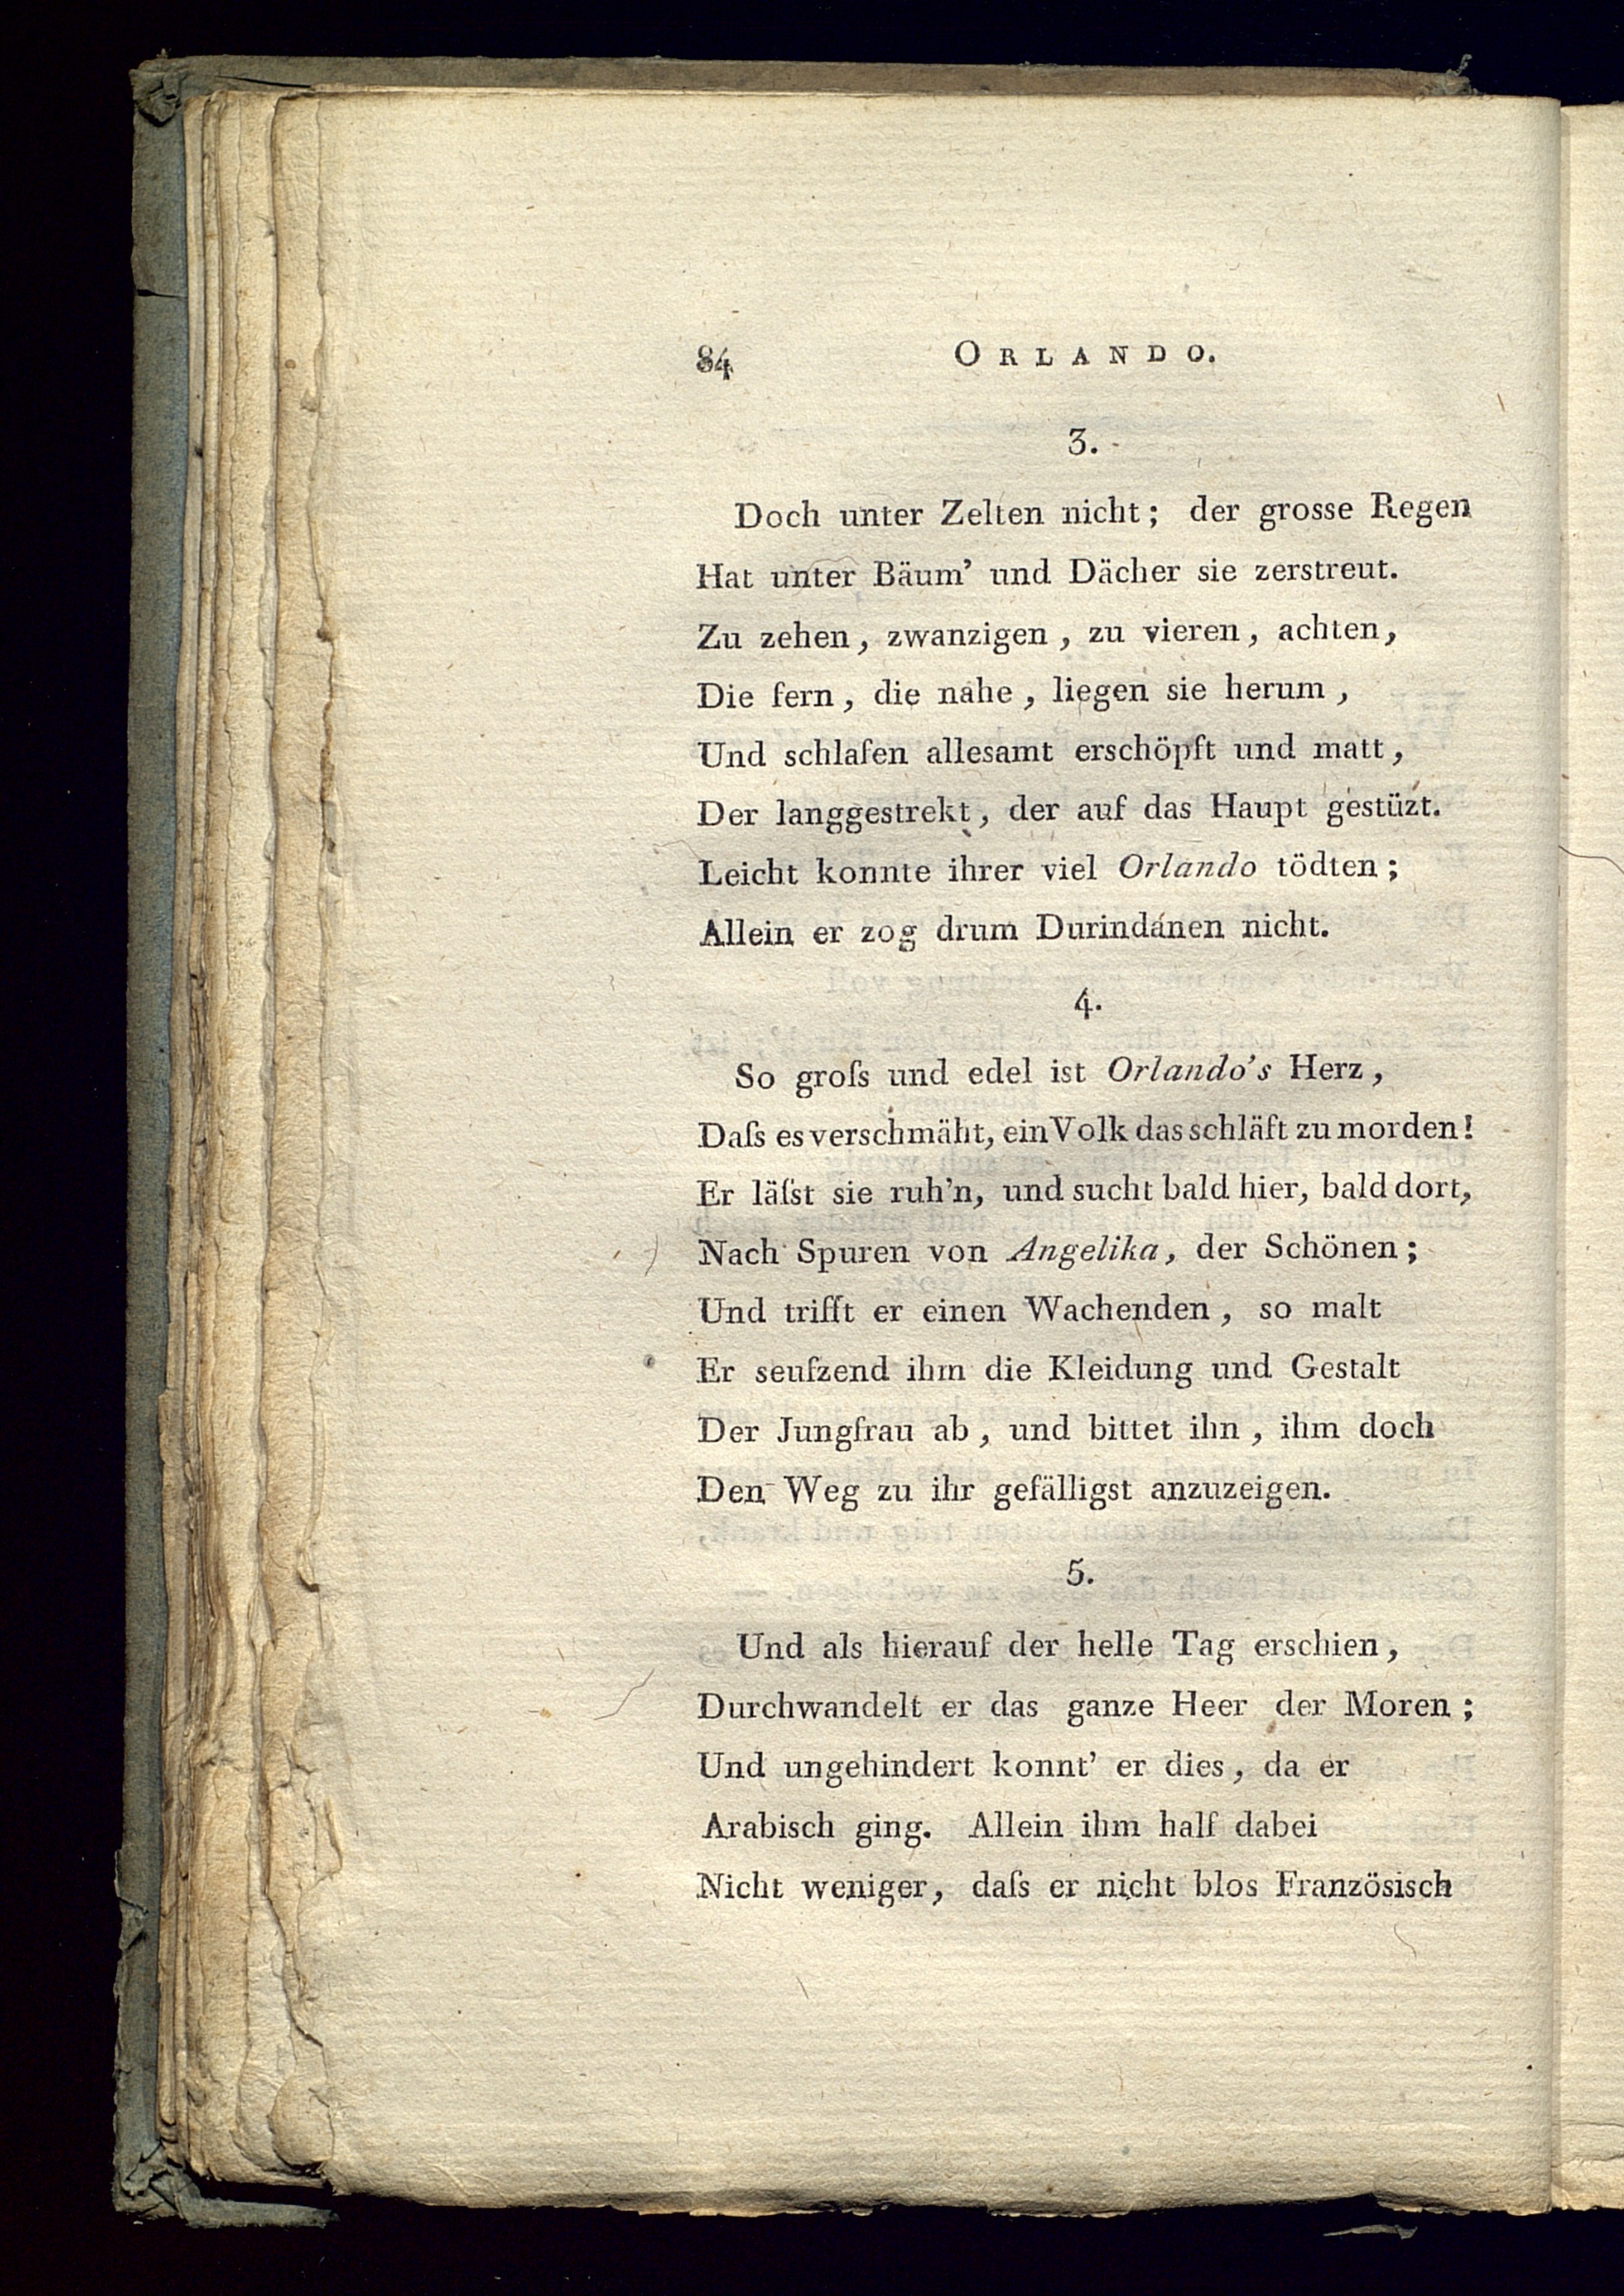 84 ORLANDO.
3.
Doch unter Zelten nicht; der grosse Regen
Hat unter Bäum' und Dächer sie zerstreut.
Zu zehen, zwanzigen, zu vieren, achten,
Die fern, die nahe, liegen sie herum,
Und schlafen allesamt erschöpft und matt,
Der langgestrekt, der auf das Haupt gestüzt.
Leicht konnte ihrer viel Orlando tödten;
Allein er zog drum Durindánen nicht.
4.
So groſs und edel ist Orlando's Herz,
Daſs es verschmäht, ein Volk das schläft zu morden!
Er läſst sie ruh'n, und sucht bald hier, bald dort,
Nach Spuren von Angelika, der Schönen;
Und trifft er einen Wachenden, so malt
Er seufzend ihm die Kleidung und Gestalt
Der Jungfrau ab, und bittet ihn, ihm doch
Den Weg zu ihr gefälligst anzuzeigen.
5.
Und als hierauf der helle Tag erschien,
Durchwandelt er das ganze Heer der Moren;
Und ungehindert konnt' er dies, da er
Arabisch ging. Allein ihm half dabei
Nicht weniger, daſs er nicht blos Französisch